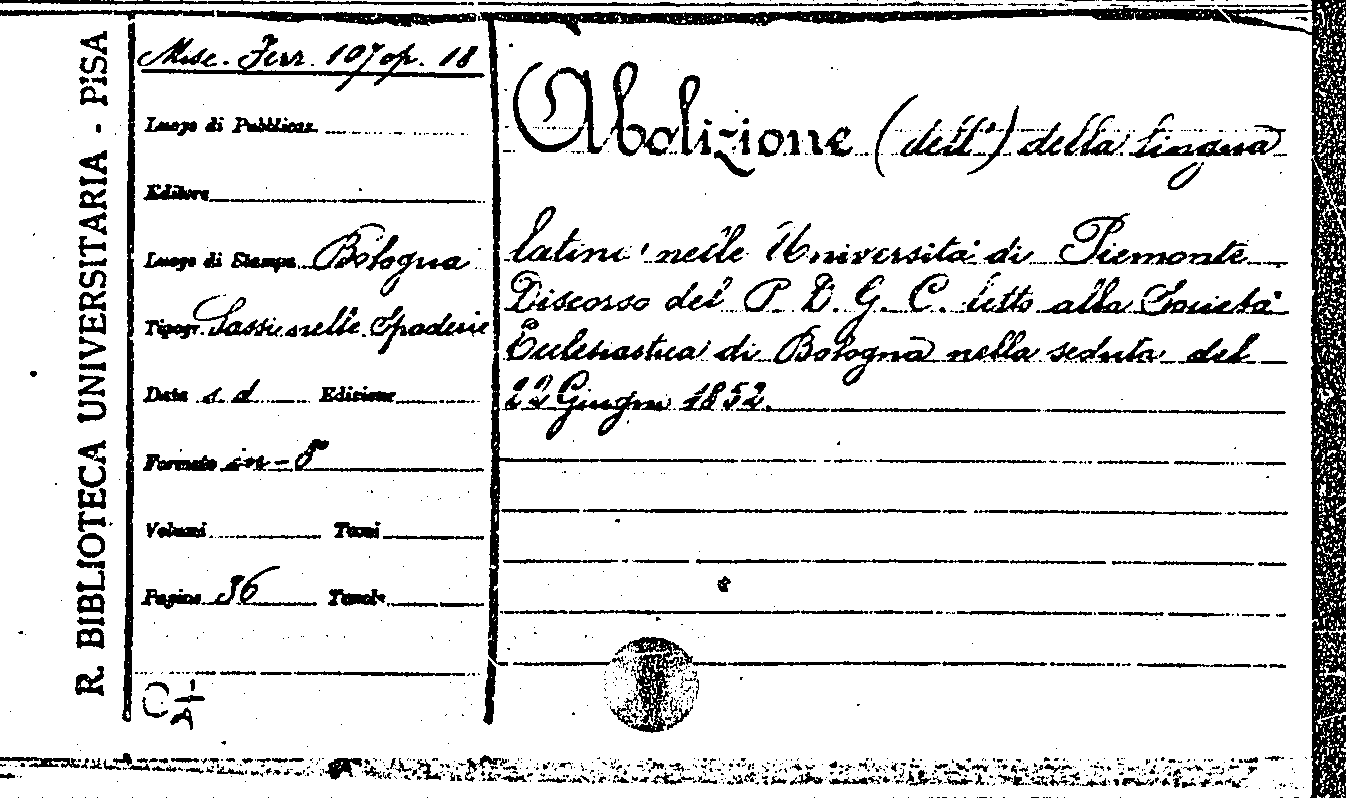 R. BIBLIOTECA UNIVERSITARIA - PISA
Misc. Ferr. 107 op. 18
Luogo di Pubblicaz.
Editore
Luogo di Stampa Bologna
Tipogr. Sassi nelle Spaderie
Data s d Edizione
Formato in-8°
Volumi Tomi
Pagine 36 Tavole
Abolizione (dell') della lingua
latina nelle Università di Piemonte
Discorso del P. D. G. C. letto alla Società
Ecclesiastica di Bologna nella seduta del
22 Giugno 1852.